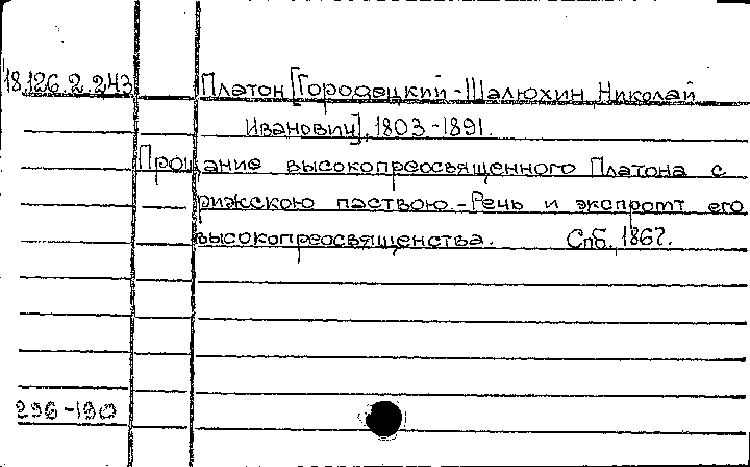 18.126.2.243 Платон [Городецкий-Шалюхин Николай
Иванович], 1803-1891.
Прощание высокопреосвященного Платона с
рижскою паствою.-Речь и экспромт его
высокопреосвященства. Спб. 1867.
296-190